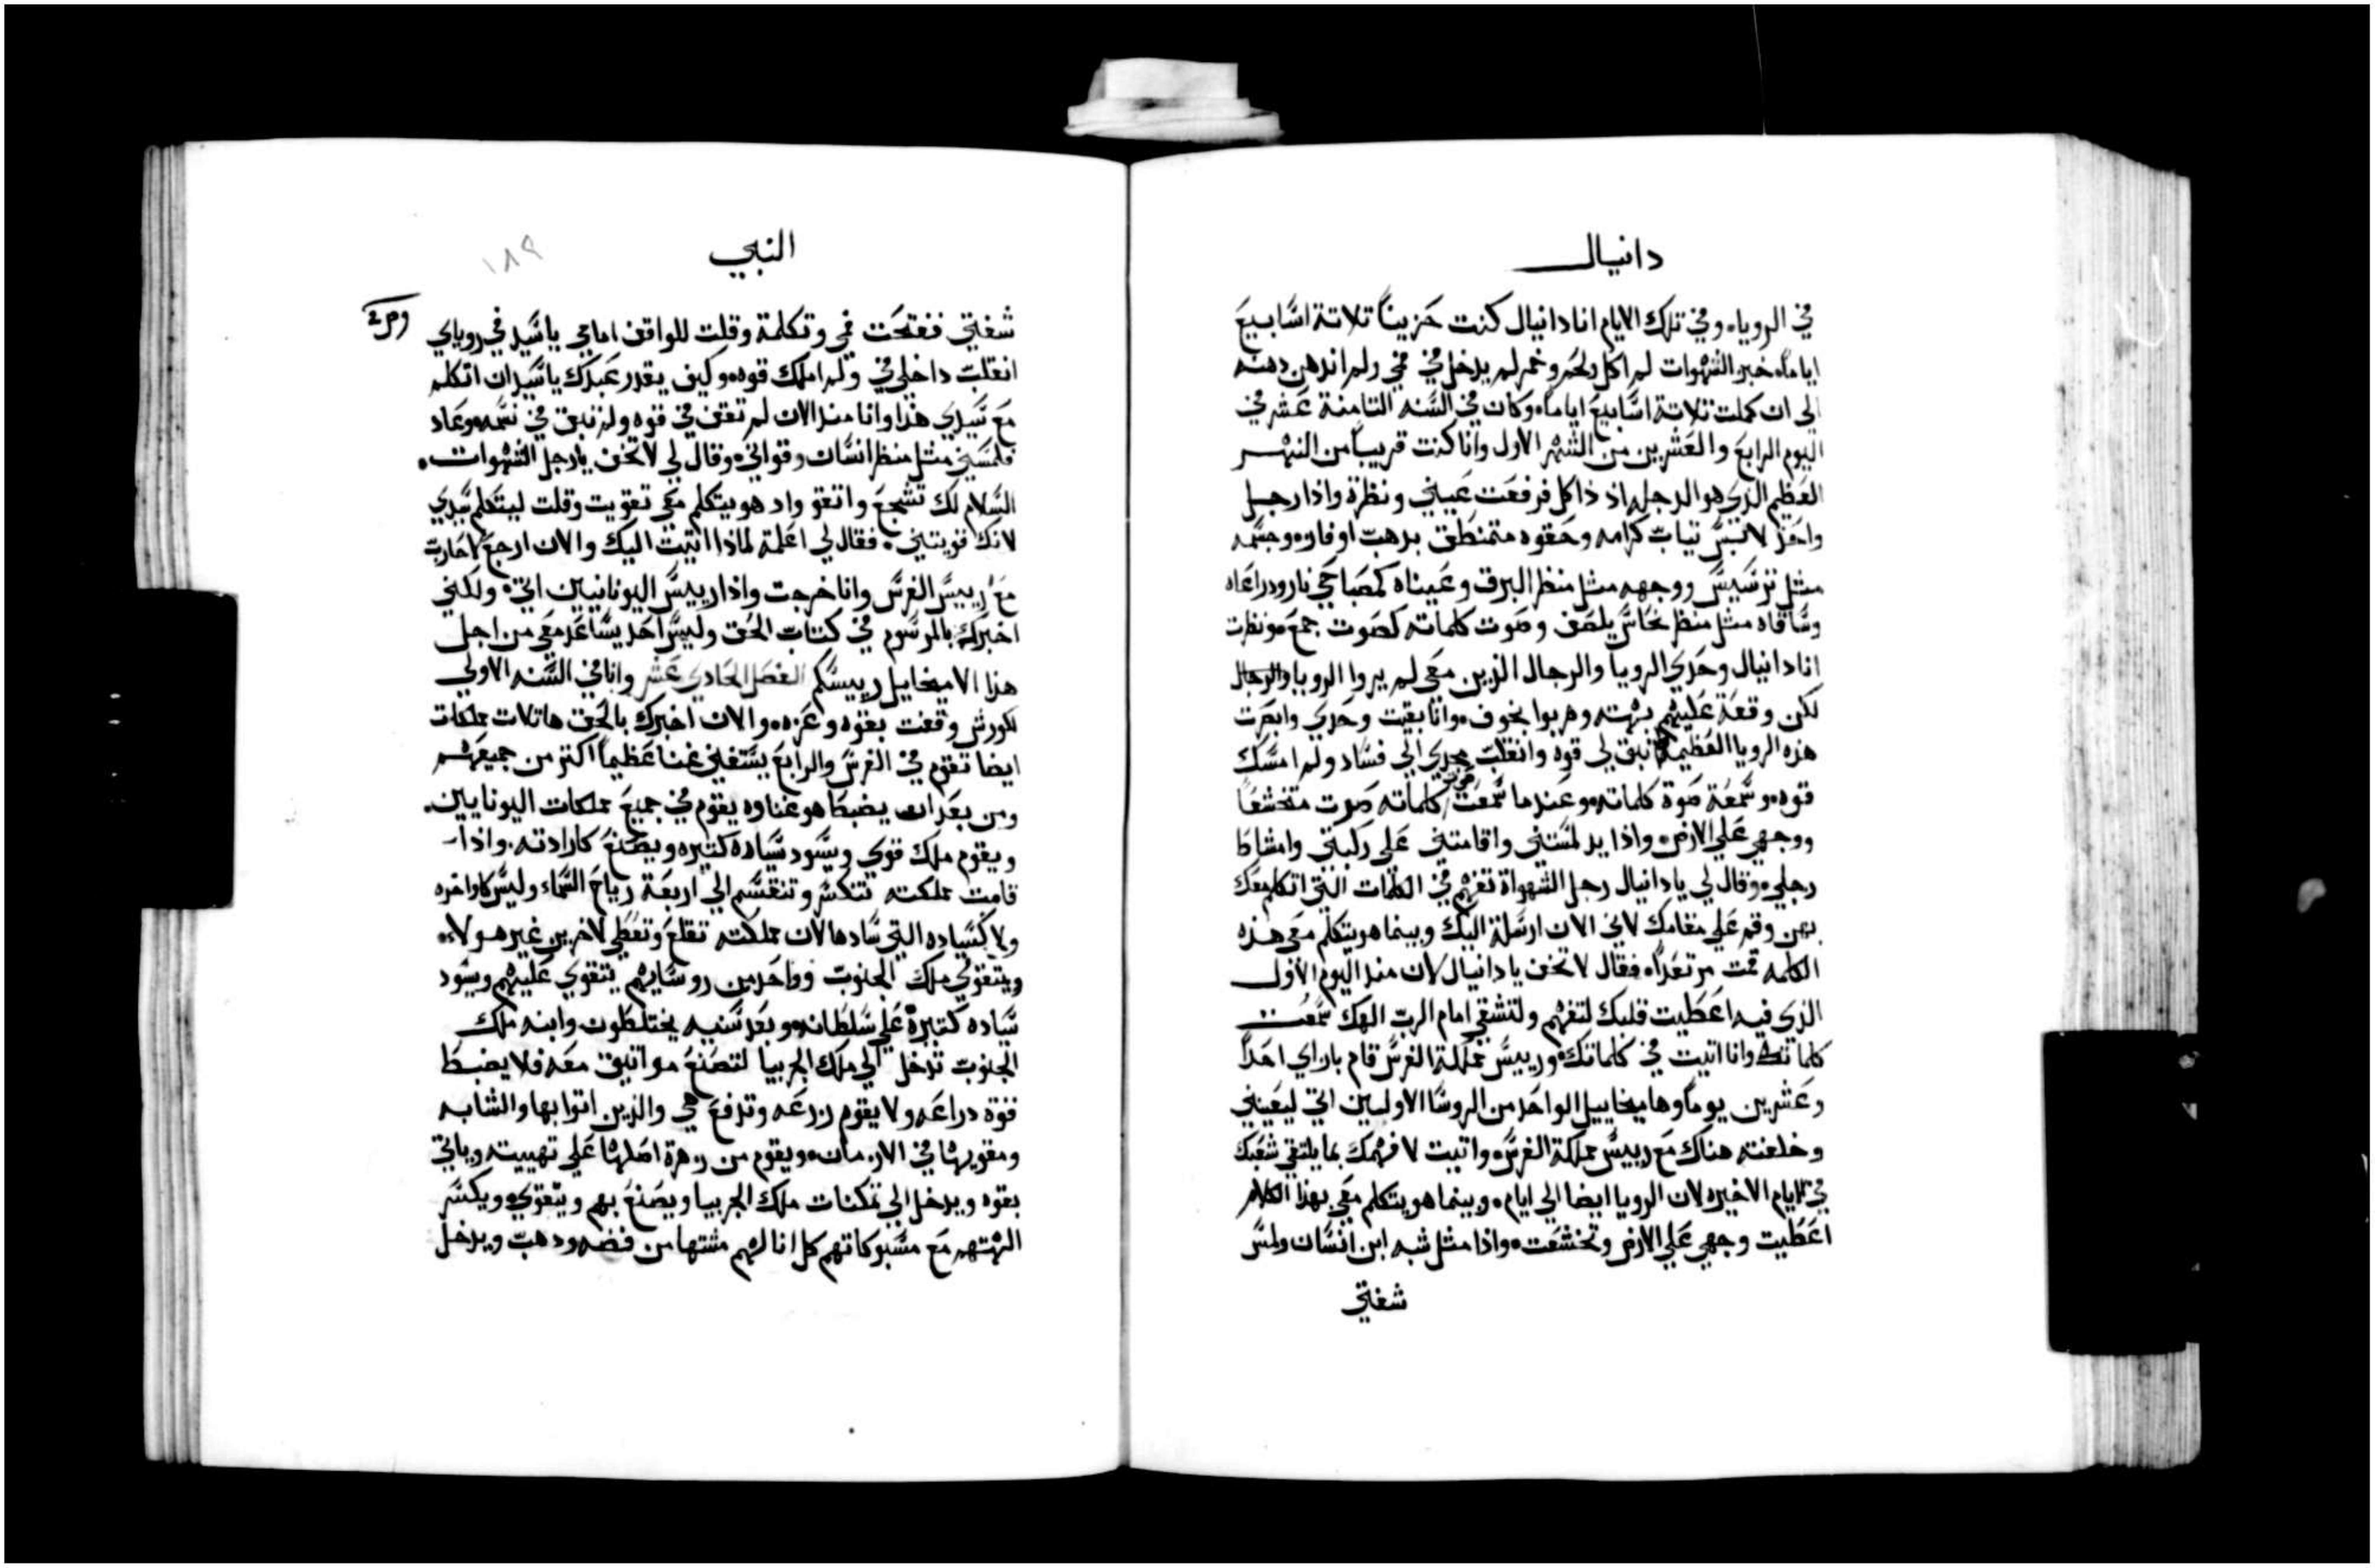 دانيال
في الروياه وفي تلك الايام انا دانيال كنت حزيناً تلاتة اسابيع
اياماه خبز الشهوات لم اكل ولحم وخمر لم يدخل في في ولم اندهن دهنه
الى ان كملت تلاتة اسابيع اياماه وكان في السنه التامنة عشر في
اليوم الرابع والعشرين من الشهر الاول وانا كنت قريباً من النهر
العظيم الذي هو الدجله اد داكل فرفعت عيني ونظرة واذا رجل
واحد لابس تياب كرامه وحقوه متمنطق بدهب اوفازه وجسمه
مثل ترسيس ووجهه مثل منظر البرق وعيناه كمصباحي نار ودراعاه
وساقاه مثل منظر نحاس يلصف وصوت كلماته كصوت جمع ونظرت
انا دانيال وحدي الرويا والرجال الذين معي لم يروا الرويا والرجال
لكن وقعة عليهم بهته وهربوا بخوف وانا بقيت وحدي وابصرت
هذه الرويا العظيمه لم تبق لي قوه وانقلبت مجدي الي فساد ولم امسك
قوه وسمعة صوة كلماته وعندما سمعت صوت كلماته صرت متخشعاً
ووجهي علي الارض واذا يد لمستني واقامتني على ركبتي وامشاط
رجلي وقال لي يا دانيال رجل الشهواة تفهم في الكلمات التي اتكلم معك
بهن وقم علي مقامك لاني الان ارسلة اليك وبينما هو يتكلم معي هذه
الكلمه قمت مرتعداً فقال لا تخف يا دانيال لان منذ اليوم الاول
الذي فيه اعطيت قلبك لتفهم ولتشقي امام الرب الهك سمعت
كلماتك وانا اتيت في كلماتك وربيس مملكة الفرس قام بازاي احداً
وعشرين يوماً وها ميخاييل الواحد من الروسا الاوليين اتي ليعينني
وخلفته هناك مع رييس مملكة الفرس واتيت لافهمك بما يلتقي شعبك
في الايام الاخيره لان الرويا ايضا الي ايام وبينما هو يتكلم معي بهذا الكلام
اعطيت وجهي علي الارض وتخشعت واذا مثل شبه ابن انسان ولمس
شفتي
النبي
١٨٩
شفتي ففتحت فمي وتكلمة وقلت للواقف امامي يا سيد في روياي
انقلبت داخلي في ولم املك قوه وكيف يقدر عبدك يا سيد ان اتكلم
مع سيدي هذا وانا منذ الان لم تقف في قوه ولم تبق في نسمه وعاد
فلمسني مثل منظر انسان وقواني وقال لي لا تخف يا رجل الشهوات
السلام لك تشجع واتقو واد هو يتكلم معي تقويت وقلت ليتكلم سيدي
لانك قويتني فقال لي اعلمة لماذا اتيت اليك والان ارجع لاحارب
مع رييس الفرس وانا خرجت واذا رييس اليونانيين اتي ولكني
اخبرك بالمرسوم في كتاب الحق وليس احد يساعد معي من اجل
هذا الا ميخاييل رييسكم الفصل الحادي عشر وانا في السنه الاولي
لكورش وقفت بقوه وعزه والان اخبرك بالحق ها تلات مملكات
ايضا تقوم في الفرس والرابع يستغني غنا عظيماً اكتر من جميعهم
ومن بعد ان يضبط هو غناوه يقوم في جميع مملكات اليونايين
ويقوم ملك قوي ويسود سياده كتيره ويصنع كارادته واذا
قامت مملكته تتكسر وتنقسم الي اربعة رياح السماء وليس كاواخره
ولا كسياده التي سادها لان مملكته تقلع وتعطي لاخرين غير هولاء
ويتقوي ملك الجنوب وواحد من روسايهم يتقوي عليهم ويسود
سياده كتيرة علي سلطانه وبعد سنيه يختلطون وابنه ملك
الجنوب تدخل الي ملك الجربيا لتصنع مواتيق معه فلا يضبط
قوة دراعه ولا يقوم زرعه وتدفع هي والذين اتوا بها والشابه
ومقويها في الازمان ويقوم من زهرة اصلها علي تهييته وياتي
بقوه ويدخل الي تمكنات ملك الجربيا ويصنع بهم ويتقوي ويكسر
الهتهم مع مسبوكاتهم كل انا لهم مشتها من فضه ودهب ويدخل